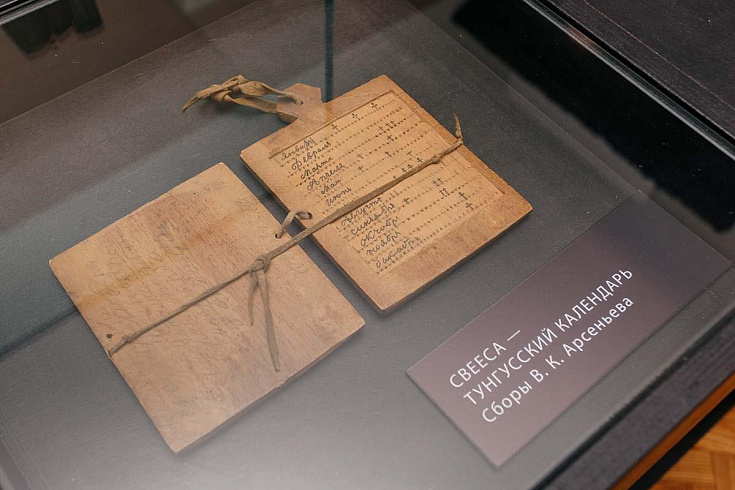 Январь
Февраль
Мартъ
Апрель
Май
Июнь
Августъ
Ноябрь
СВЕЕСА —
ТУНГУССКИЙ КАЛЕНДАРЬ
Сборы В. К. Арсеньева